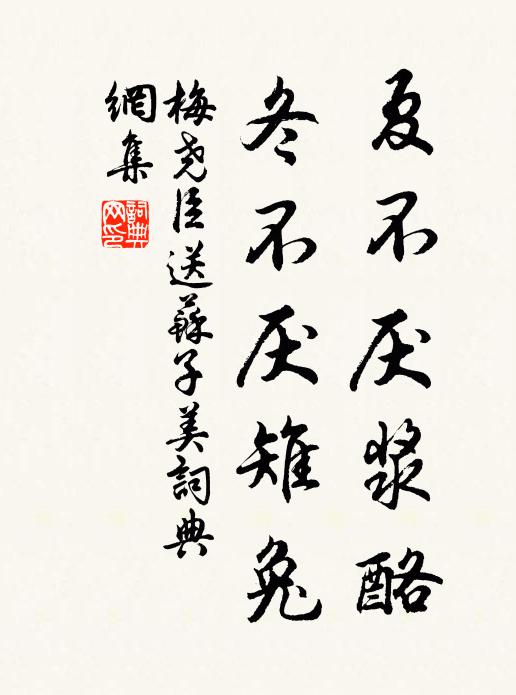 夏不厌浆酪
冬不厌雉兔
梅尧臣送蘇子美詞典
網集
詞典网印